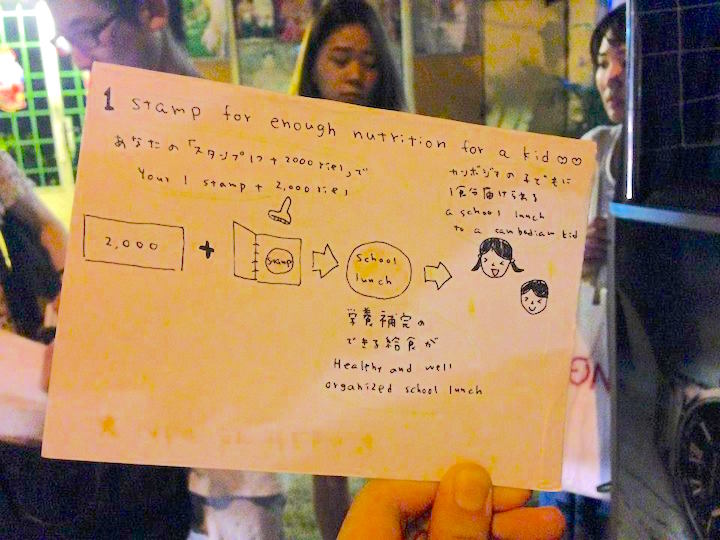 1 stamp for enough nutrition for a kid ♡♡
あなたの「スタンプ1つ + 2000 riel」で
Your 1 stamp + 2,000 riel
カンボジアの子どもに
1食分届けられる
a school lunch
to a cambodian kid
2,000
+
stamp
school
lunch
栄養補完の
できる給食が
Healthy and well
organized school lunch